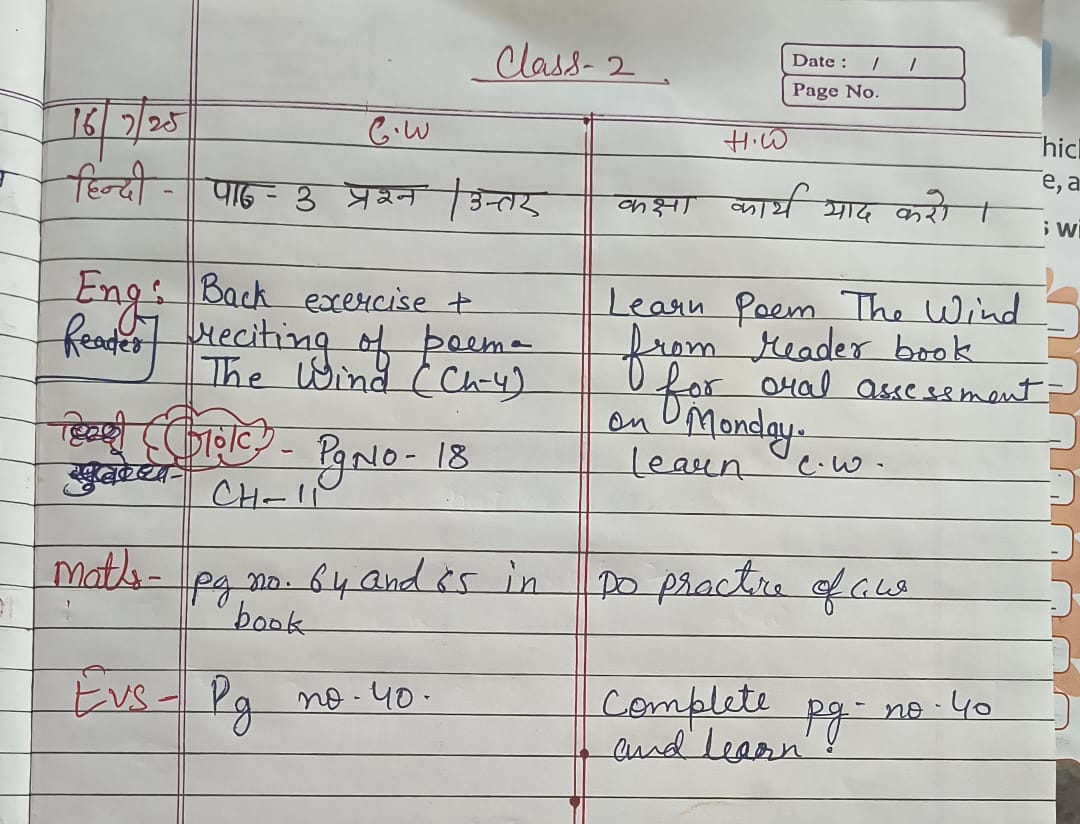 Class-2
Date : / /
Page No.
16/7/25 C.W H.W
हिन्दी - पाठ - 3 प्रश्न /उन्तर कक्षा कार्य याद करो ।
Eng: Back exercise + Learn Poem The Wind
Reader reciting of poem- from reader book
The Wind (Ch-4) for oral assessment
on Monday.
G.k - Pg No - 18 Learn c.w.
CH-11
Maths- pg no. 64 and 65 in Do practice of c.w
book
Evs- Pg no-40. Complete pg-no-40
and learn.
hich
e, a
s wi